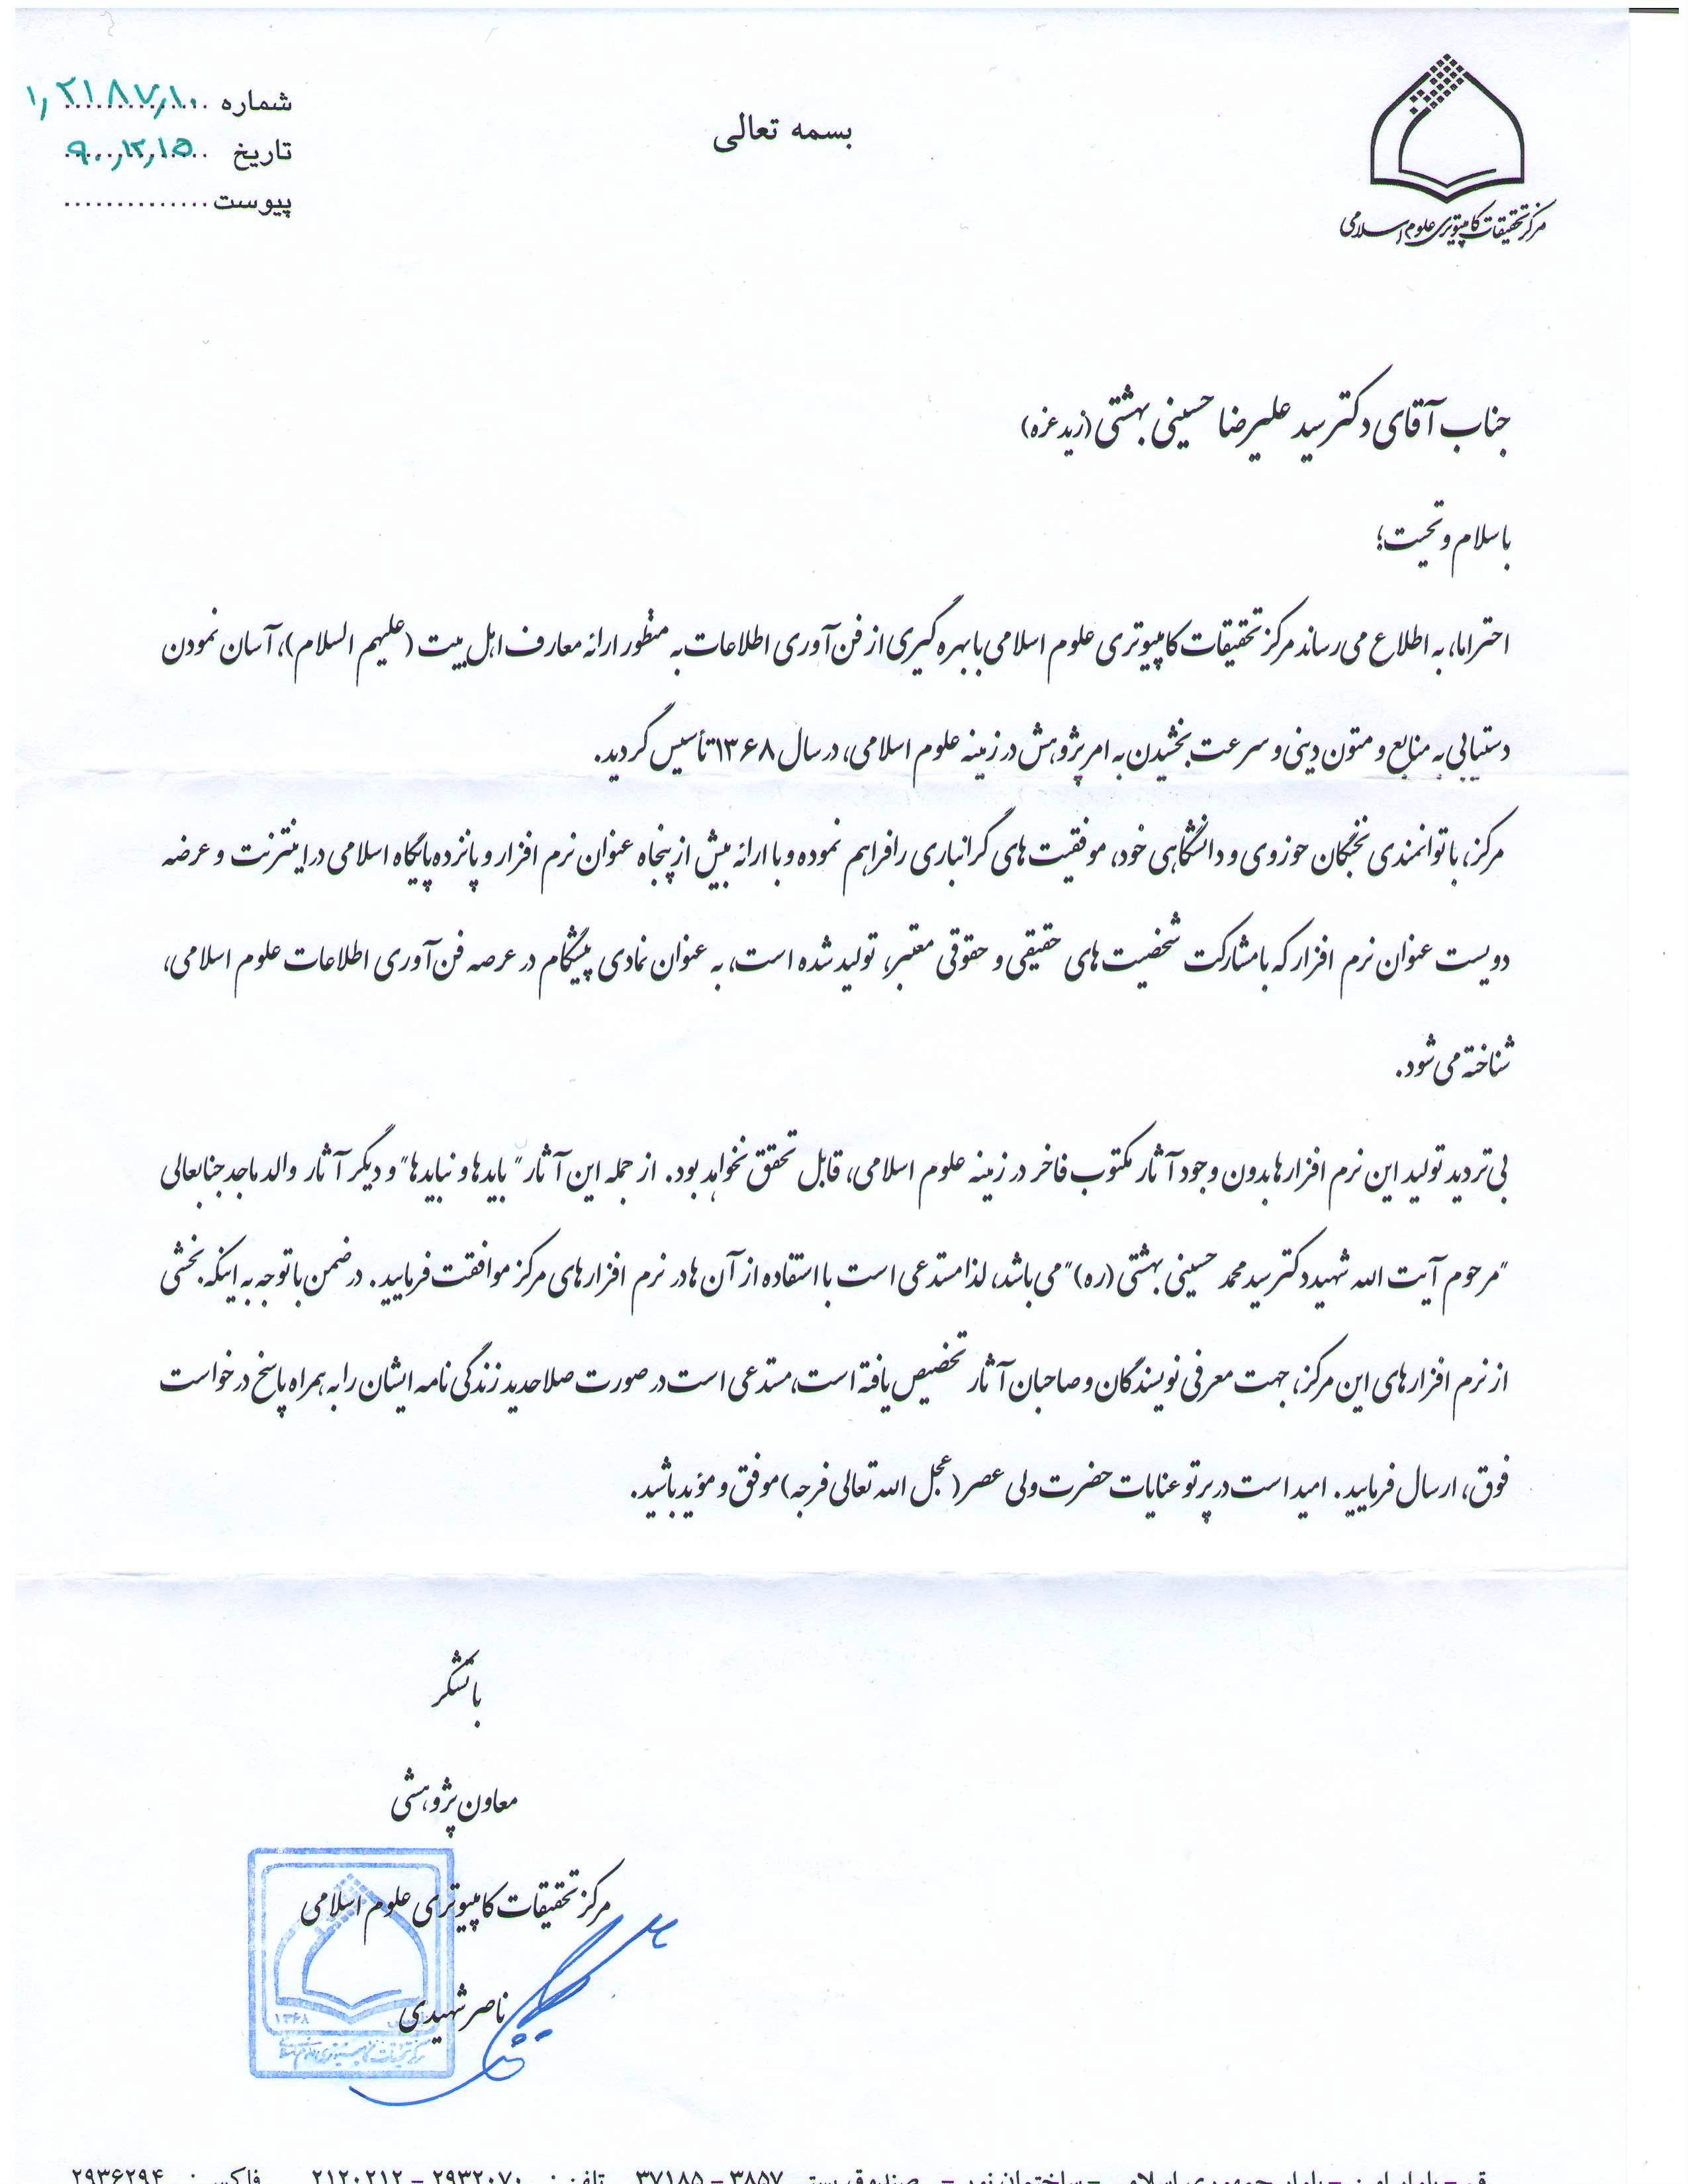 مرکز تحقیقات کامپیوتری علوم اسلامی
بسمه تعالی
شماره ۱٫۲۱۸۷٫۱۰
تاریخ ۹۰٫۱۲٫۱۵
پیوست ..............
جناب آقای دکتر سید علیرضا حسینی بهشتی (زید عزه)
با سلام و تحیت؛
احتراما، به اطلاع می رساند مرکز تحقیقات کامپیوتری علوم اسلامی با بهره گیری از فن آوری اطلاعات به منظور ارائه معارف اهل بیت (علیهم السلام)، آسان نمودن
دستیابی به منابع و متون دینی و سرعت بخشیدن به امر پژوهش در زمینه علوم اسلامی، در سال ۱۳۶۸ تأسیس گردید.
مرکز، با توانمندی نخبگان حوزوی و دانشگاهی خود، موفقیت های گرانباری را فراهم نموده و با ارائه بیش از پنجاه عنوان نرم افزار و پانزده پایگاه اسلامی در اینترنت و عرضه
دویست عنوان نرم افزار که با مشارکت شخصیت های حقیقی و حقوقی معتبر، تولید شده است، به عنوان نمادی پیشگام در عرصه فن آوری اطلاعات علوم اسلامی،
شناخته می شود.
بی تردید تولید این نرم افزارها بدون وجود آثار مکتوب فاخر در زمینه علوم اسلامی، قابل تحقق نخواهد بود. از جمله این آثار "بایدها و نبایدها" و دیگر آثار والد ماجد جنابعالی
"مرحوم آیت الله شهید دکتر سید محمد حسینی بهشتی (ره)" می باشد، لذا مستدعی است با استفاده از آن ها در نرم افزارهای مرکز موافقت فرمایید. در ضمن با توجه به اینکه بخشی
از نرم افزارهای این مرکز، جهت معرفی نویسندگان و صاحبان آثار تخصیص یافته است، مستدعی است در صورت صلاحدید زندگی نامه ایشان را به همراه پاسخ درخواست
فوق، ارسال فرمایید. امید است در پرتو عنایات حضرت ولی عصر (عجل الله تعالی فرجه) موفق و موید باشید.
با تشکر
معاون پژوهشی
مرکز تحقیقات کامپیوتری علوم اسلامی
ناصر شهیدی
۱۳۶۸
مرکز تحقیقات کامپیوتری علوم اسلامی
قم – بلوار امین – بلوار جمهوری اسلامی – ساختمان نور – صندوق پستی ۳۸۵۷ – ۳۷۱۸۵ تلفن : ۲۹۳۲۰۷۰ – ۲۱۲۰۲۱۲ فاکس : ۲۹۳۶۲۹۴